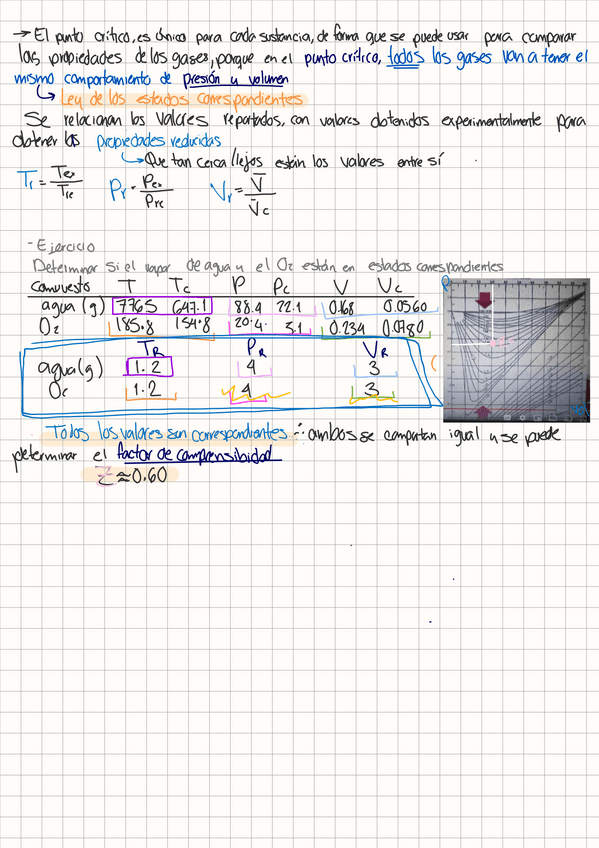 → El punto crítico, es único para cada sustancia, de forma que se puede usar para comparar
las propiedades de los gases, porque en el punto crítico, todos los gases van a tener el
mismo comportamiento de presión y volumen
↳ Ley de los estados correspondientes
Se relacionan los valores reportados, con valores obtenidos experimentalmente para
obtener las propiedades reducidas
↳ Que tan cerca/lejos están los valores entre sí
Tr = Tex/Trc Pr = Pex/Prc Vr = V̄/V̄c
- Ejercicio
Determinar si el vapor de agua y el O2 están en estados correspondientes
compuesto T Tc P Pc V Vc
agua (g) 776.5 647.1 88.4 22.1 0.168 0.0560
O2 185.8 154.8 20.4 5.1 0.234 0.0780
TR PR VR
agua(g) 1.2 4 3
Oc 1.2 4 3
Todos los valores son correspondientes ∴ ambos se comportan igual y se puede
determinar el factor de comprensibidad
Z ≈ 0.60